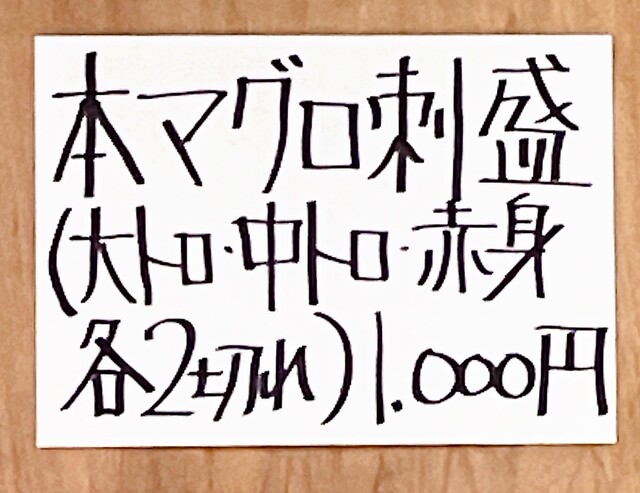 本マグロ刺盛
(大トロ·中トロ·赤身
各2切れ)1.000円